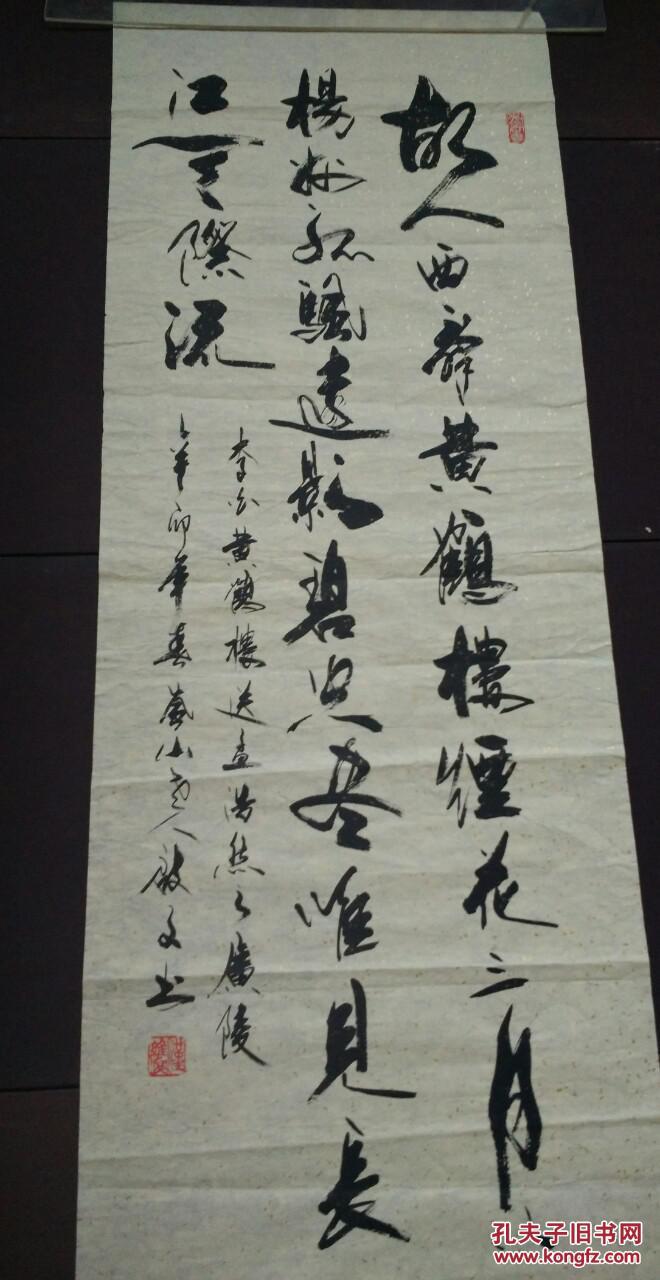 故人西辭黄鶴樓煙花三月下
楊州孤颿遠影碧空尽唯見長
江天際流
李白黄鶴樓送孟浩然之廣陵
辛卯年春山老人文书
孔夫子旧书网
www.kongfz.com